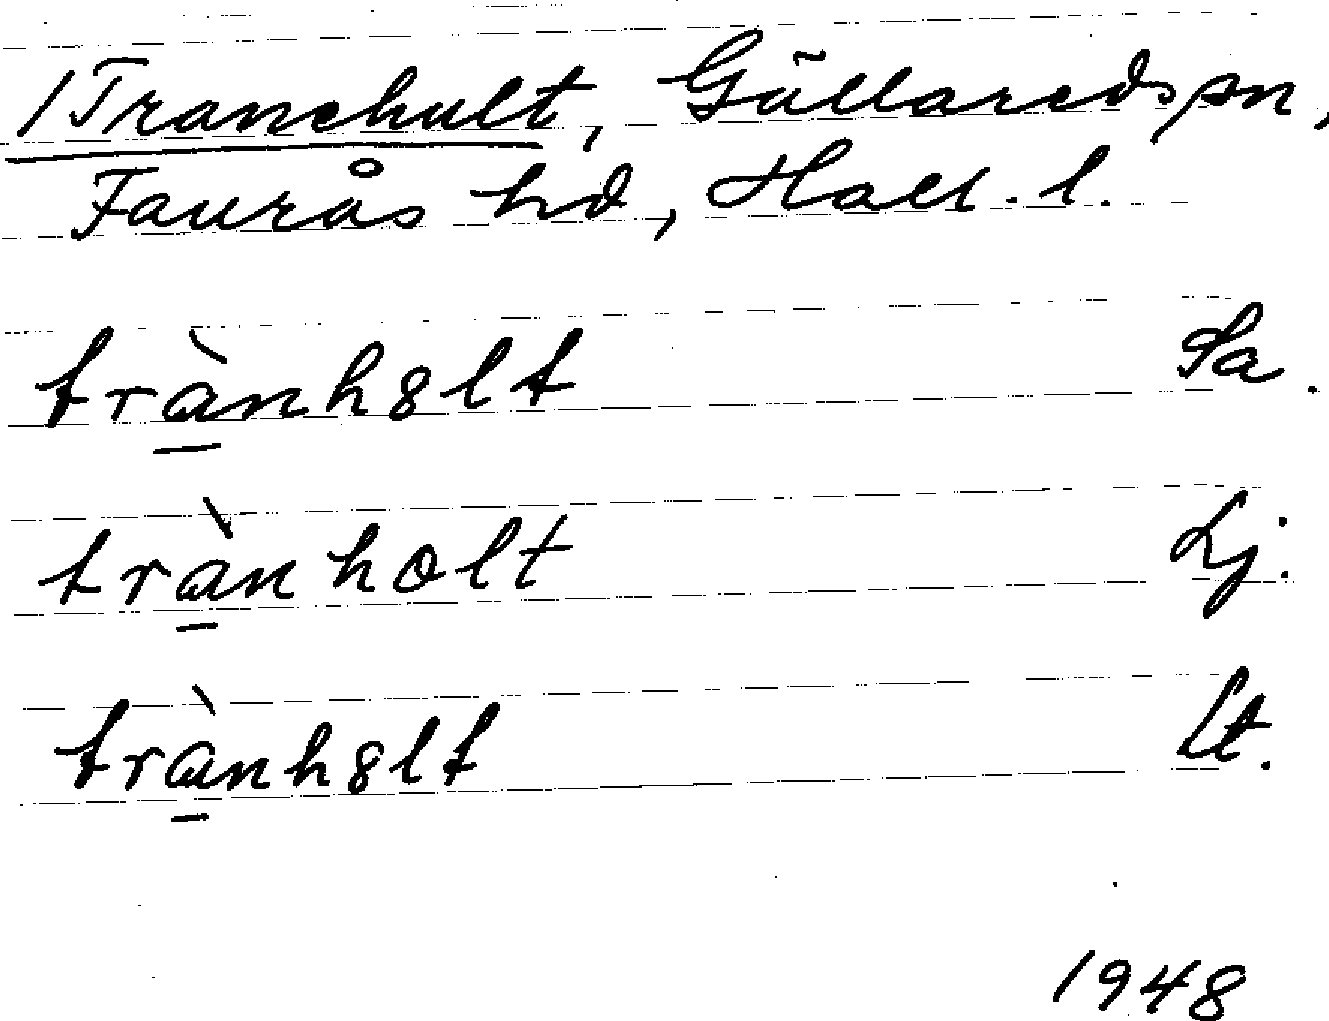 /Tranehult, Gällareds sn,
Faurås hd, Hall. l.
trành8lt Sa.
trànholt Lj.
trành8lt Lt.
1948